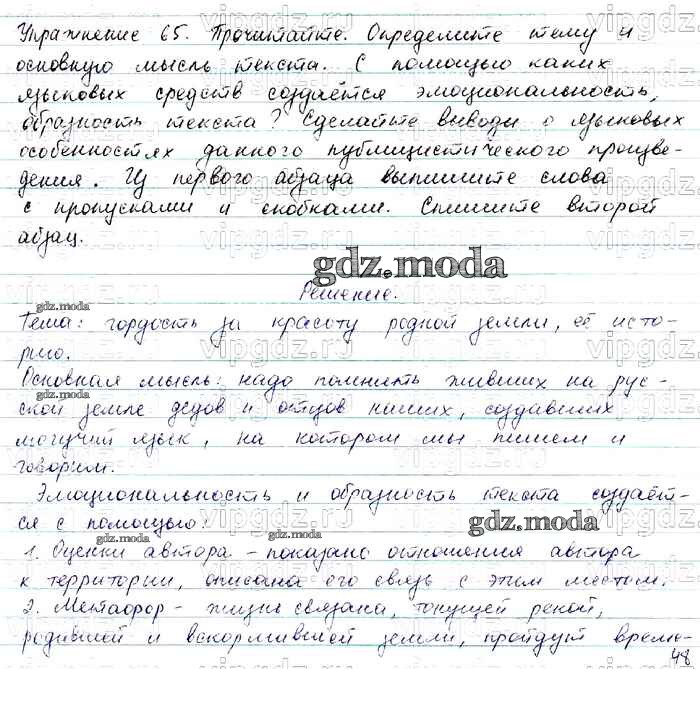 Упражнение 65. Прочитайте. Определите тему и
основную мысль текста. С помощью каких
языковых средств создаётся эмоциональность,
образность текста? Сделайте выводы о языковых
особенностях данного публицистического произве-
дения. Из первого абзаца выпишите слова
с пропусками и скобками. Спишите второй
абзац.
gdz.moda
Решение.
gdz.moda
Тема: гордость за красоту родной земли, её исто-
рию.
Основная мысль: надо помнить живших на рус-
ской земле дедов и отцов наших, создавших
gdz.moda
могучий язык, на котором мы пишем и
говорим.
Эмоциональность и образность текста создаёт-
ся с помощью:
gdz.moda
gdz.moda
1. Оценки автора - показано отношения автора
к территории, описана его связь с этим местом.
2. Метафор - жизнь связана, текущей рекой,
родившей и вскормившей земли, пройдут време-
gdz.moda
48
vipgdz.ru